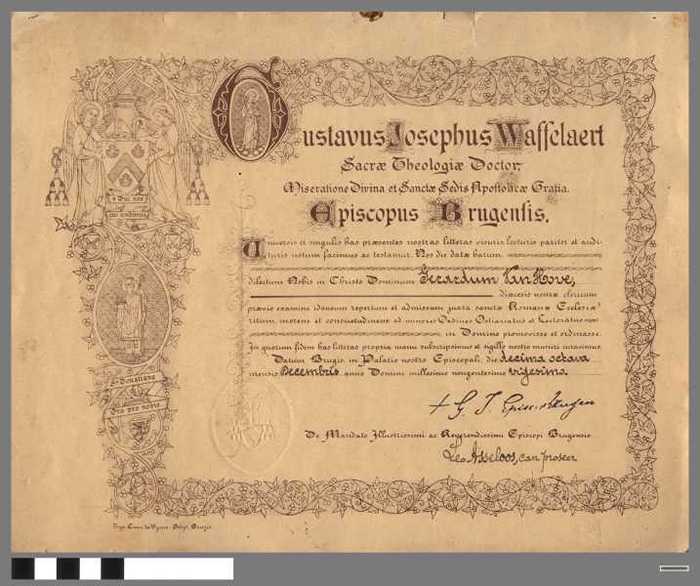 Gustavus Josephus Waffelaert
Sacræ Theologiæ Doctor,
Miseratione Divina et Sanctæ Sedis Apostolicæ Gratia.
Episcopus Brugensis.
Universis et singulis has præsentes nostras litteras visuris lecturis pariter et audi-
turis notum facimus ac testamur. Nos die datæ harum
dilectum Nobis in Christo Dominum Gerardum Van Hove,
diœcesis nostræ clericum
prævio examine idoneum repertum et admissum juxta sanctæ Romanæ Ecclesiæ
ritum, morem et consuetudinem ad minores Ordines Ostiariatus et Lectoratus
in Domino promovisse et ordinasse.
In quorum fidem has litteras propria manu subscripsimus et sigillo nostro muniri mandavimus.
Datum Brugis, in Palatio nostro Episcopali, die decima octava
mensis Decembris anno Domini millesimo nongentesimo vigesimo.
+ G. J. Episc. Brugen
De Mandato Illustrissimi ac Reverendissimi Episcopi Brugensis
Leo Asseloos, can.
S. Donatiane
Ora pro nobis